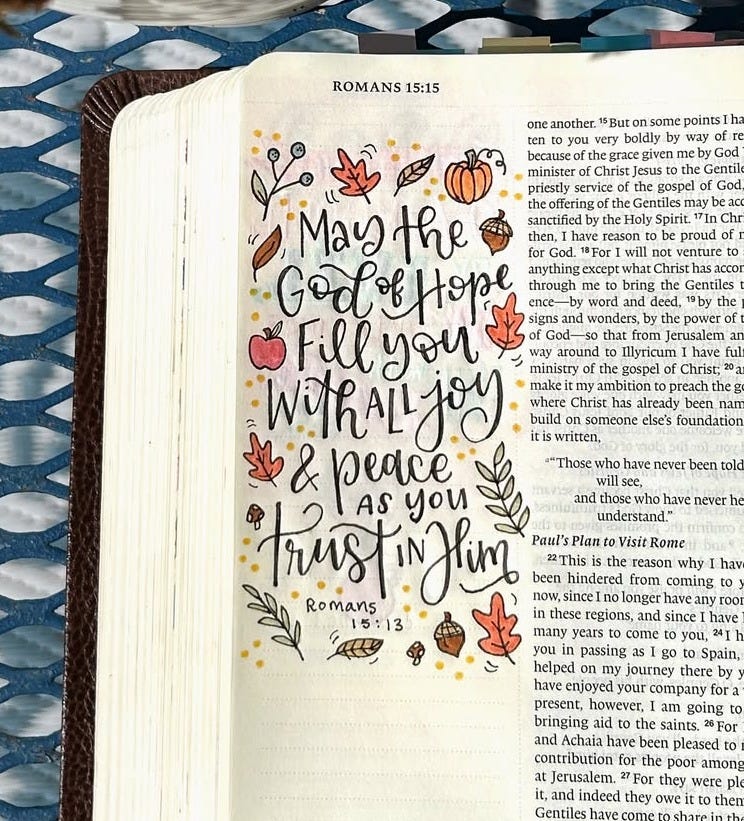 ROMANS 15:15
May the
God of Hope
Fill you
With ALL joy
& peace
AS you
trust IN Him
Romans
15:13
one another. 15 But on some points I ha
ten to you very boldly by way of re
because of the grace given me by God
minister of Christ Jesus to the Gentile
priestly service of the gospel of God,
the offering of the Gentiles may be acc
sanctified by the Holy Spirit. 17 In Chr
then, I have reason to be proud of m
for God. 18 For I will not venture to
anything except what Christ has accom
through me to bring the Gentiles t
ence—by word and deed, 19 by the p
signs and wonders, by the power of t
of God—so that from Jerusalem an
way around to Illyricum I have full
ministry of the gospel of Christ; 20 an
make it my ambition to preach the go
where Christ has already been nam
build on someone else's foundation
it is written,
"Those who have never been told
will see,
and those who have never he
understand."
Paul's Plan to Visit Rome
22 This is the reason why I have
been hindered from coming to y
now, since I no longer have any roor
in these regions, and since I have l
many years to come to you, 24 I h
you in passing as I go to Spain,
helped on my journey there by y
have enjoyed your company for a
present, however, I am going to
bringing aid to the saints. 26 For
and Achaia have been pleased to
contribution for the poor among
at Jerusalem. 27 For they were ple
it, and indeed they owe it to them
Gentiles have come to share in the